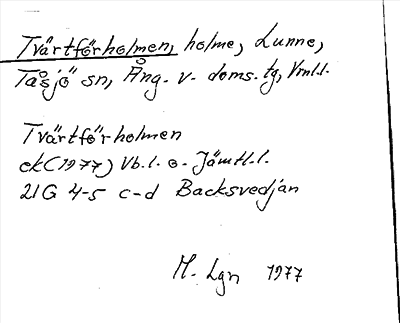 Tvärtförholmen, holme, Lunne,
Tåsjö sn, Ång. v. doms. tg, Vrnl.l.
Tvärtförholmen
ek (1977) Vb.l. o. Jämtl.l.
21G 4-5 c-d Backsvedjan
M. Lgn 1977